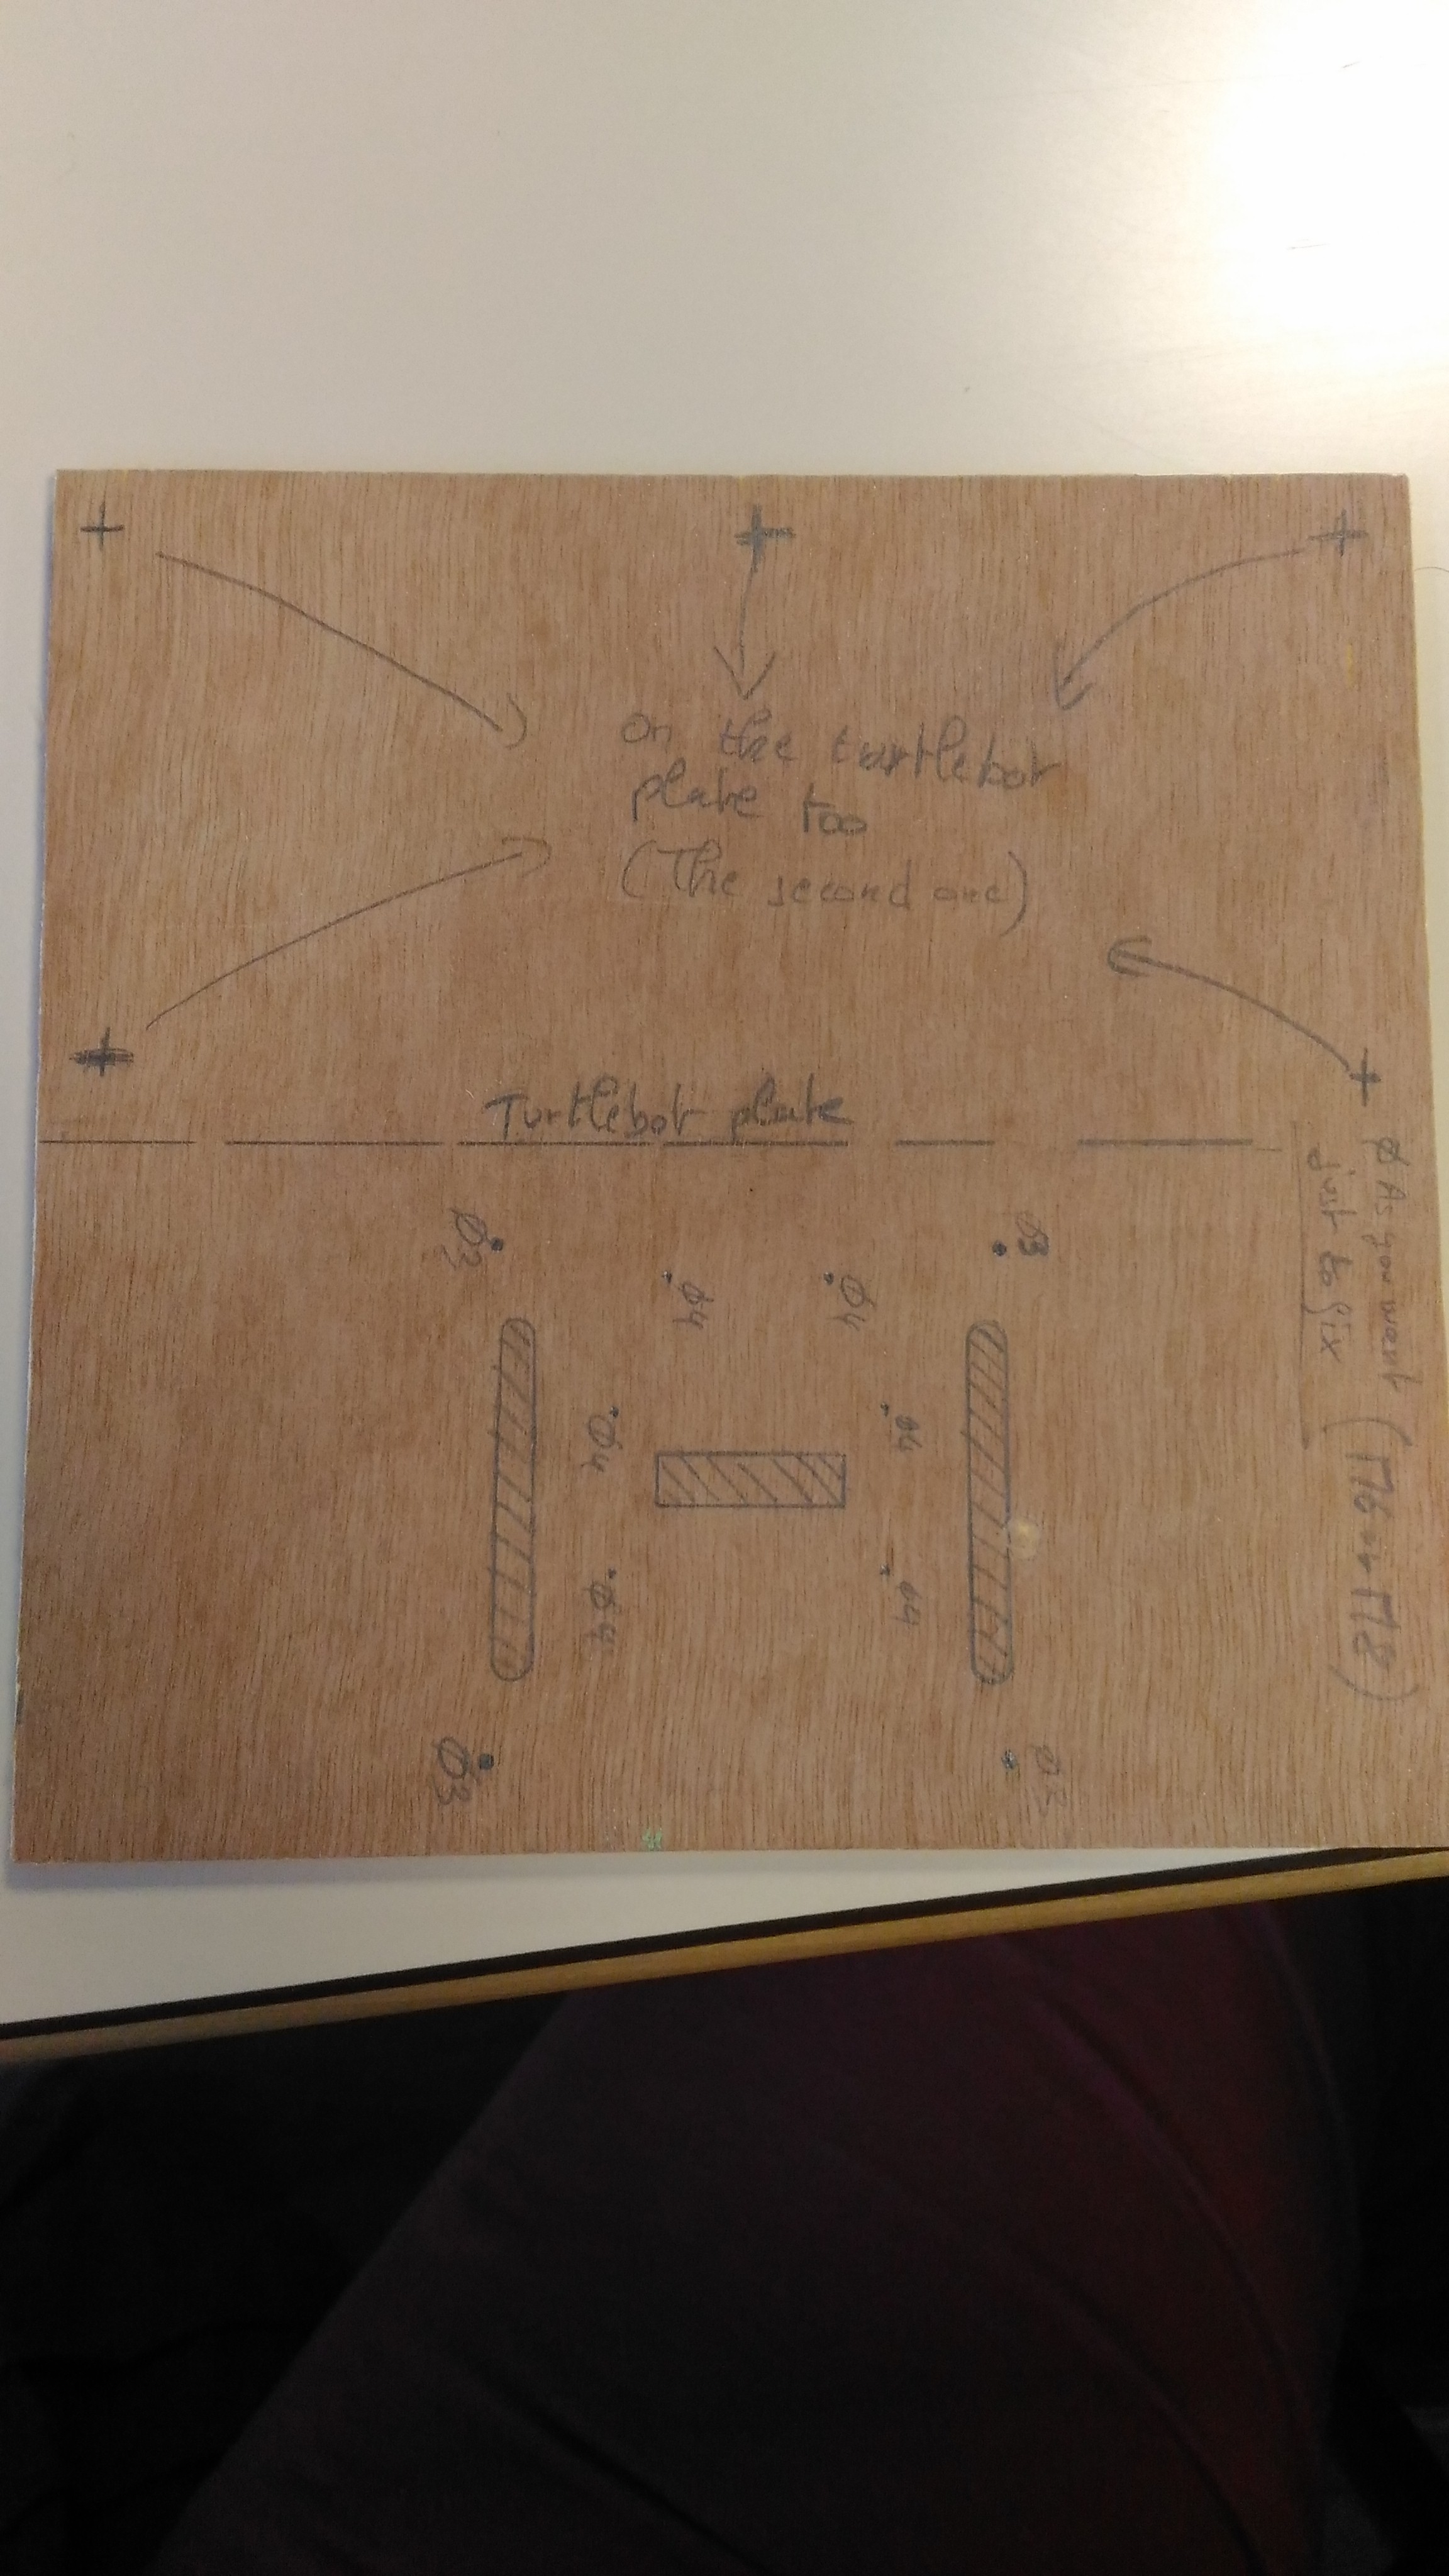 on the turtlebot
plate too
(The second one)
Turtlebot plate
Ø As you want (M6 or M8)
just to fix
Ø3
Ø3
Ø4
Ø4
Ø4
Ø4
Ø4
Ø4
Ø3
Ø3